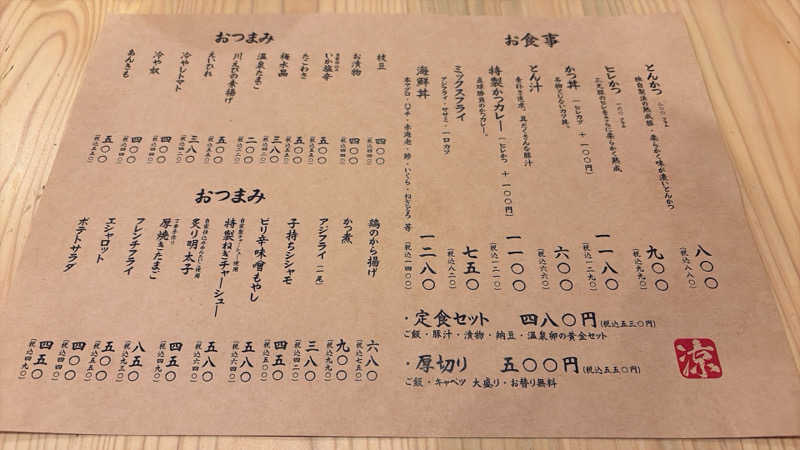 お食事
とんかつ 二〇〇グラム 八〇〇
独自製法の熟成豚・柔らかく味が濃いとんかつ (税込八八〇)
ヒレかつ 一六〇グラム 九〇〇
(税込九九〇)
かつ丼 (ヒレカツ + 一〇〇円) 一一八〇
(税込一二九〇)
とん汁 六〇〇
骨から煮出、具だくさんな豚汁 (税込六六〇)
特製かつカレー (ヒレかつ + 一〇〇円) 一一〇〇
直球勝負のかつカレー。 (税込一二一〇)
ミックスフライ 七五〇
アジフライ・ササミ・一口カツ (税込八二〇)
海鮮丼 一二八〇
本マグロ・ハマチ・赤海老・鯵・いくら・ねぎとろ 等 (税込一四〇〇)
・定食セット 四八〇円(税込五三〇円)
ご飯・豚汁・漬物・納豆・温泉卵の黄金セット
・厚切り 五〇〇円(税込五五〇円)
ご飯・キャベツ 大盛り・お替り無料
涼
おつまみ
枝豆 四〇〇
(税込四四〇)
お漬物 四〇〇
(税込四四〇)
いか塩辛 五〇〇
(税込五五〇)
たこわさ 五〇〇
(税込五五〇)
梅水晶 三八〇
(税込四二〇)
温泉たまご 二〇〇
川えびの素揚げ 五〇〇
(税込五五〇)
えいひれ 五〇〇
(税込五五〇)
冷やしトマト 三八〇
(税込四二〇)
冷や奴 四〇〇
(税込四四〇)
あんきも 五〇〇
(税込五五〇)
おつまみ
鶏のから揚げ 六八〇
(税込七五〇)
かつ煮 九〇〇
(税込九九〇)
アジフライ (一尾) 三八〇
(税込四二〇)
子持ちシシャモ 四五〇
(税込五〇〇)
ピリ辛味噌もやし 四五〇
特製ねぎチャーシュー 五八〇
自家製チャーシュー使用 (税込六四〇)
炙り明太子 五八〇
(税込六四〇)
厚焼きたまご 四五〇
フレンチフライ 八五〇
(税込九三〇)
エシャロット 四〇〇
(税込四四〇)
ポテトサラダ 四五〇
(税込四九〇)